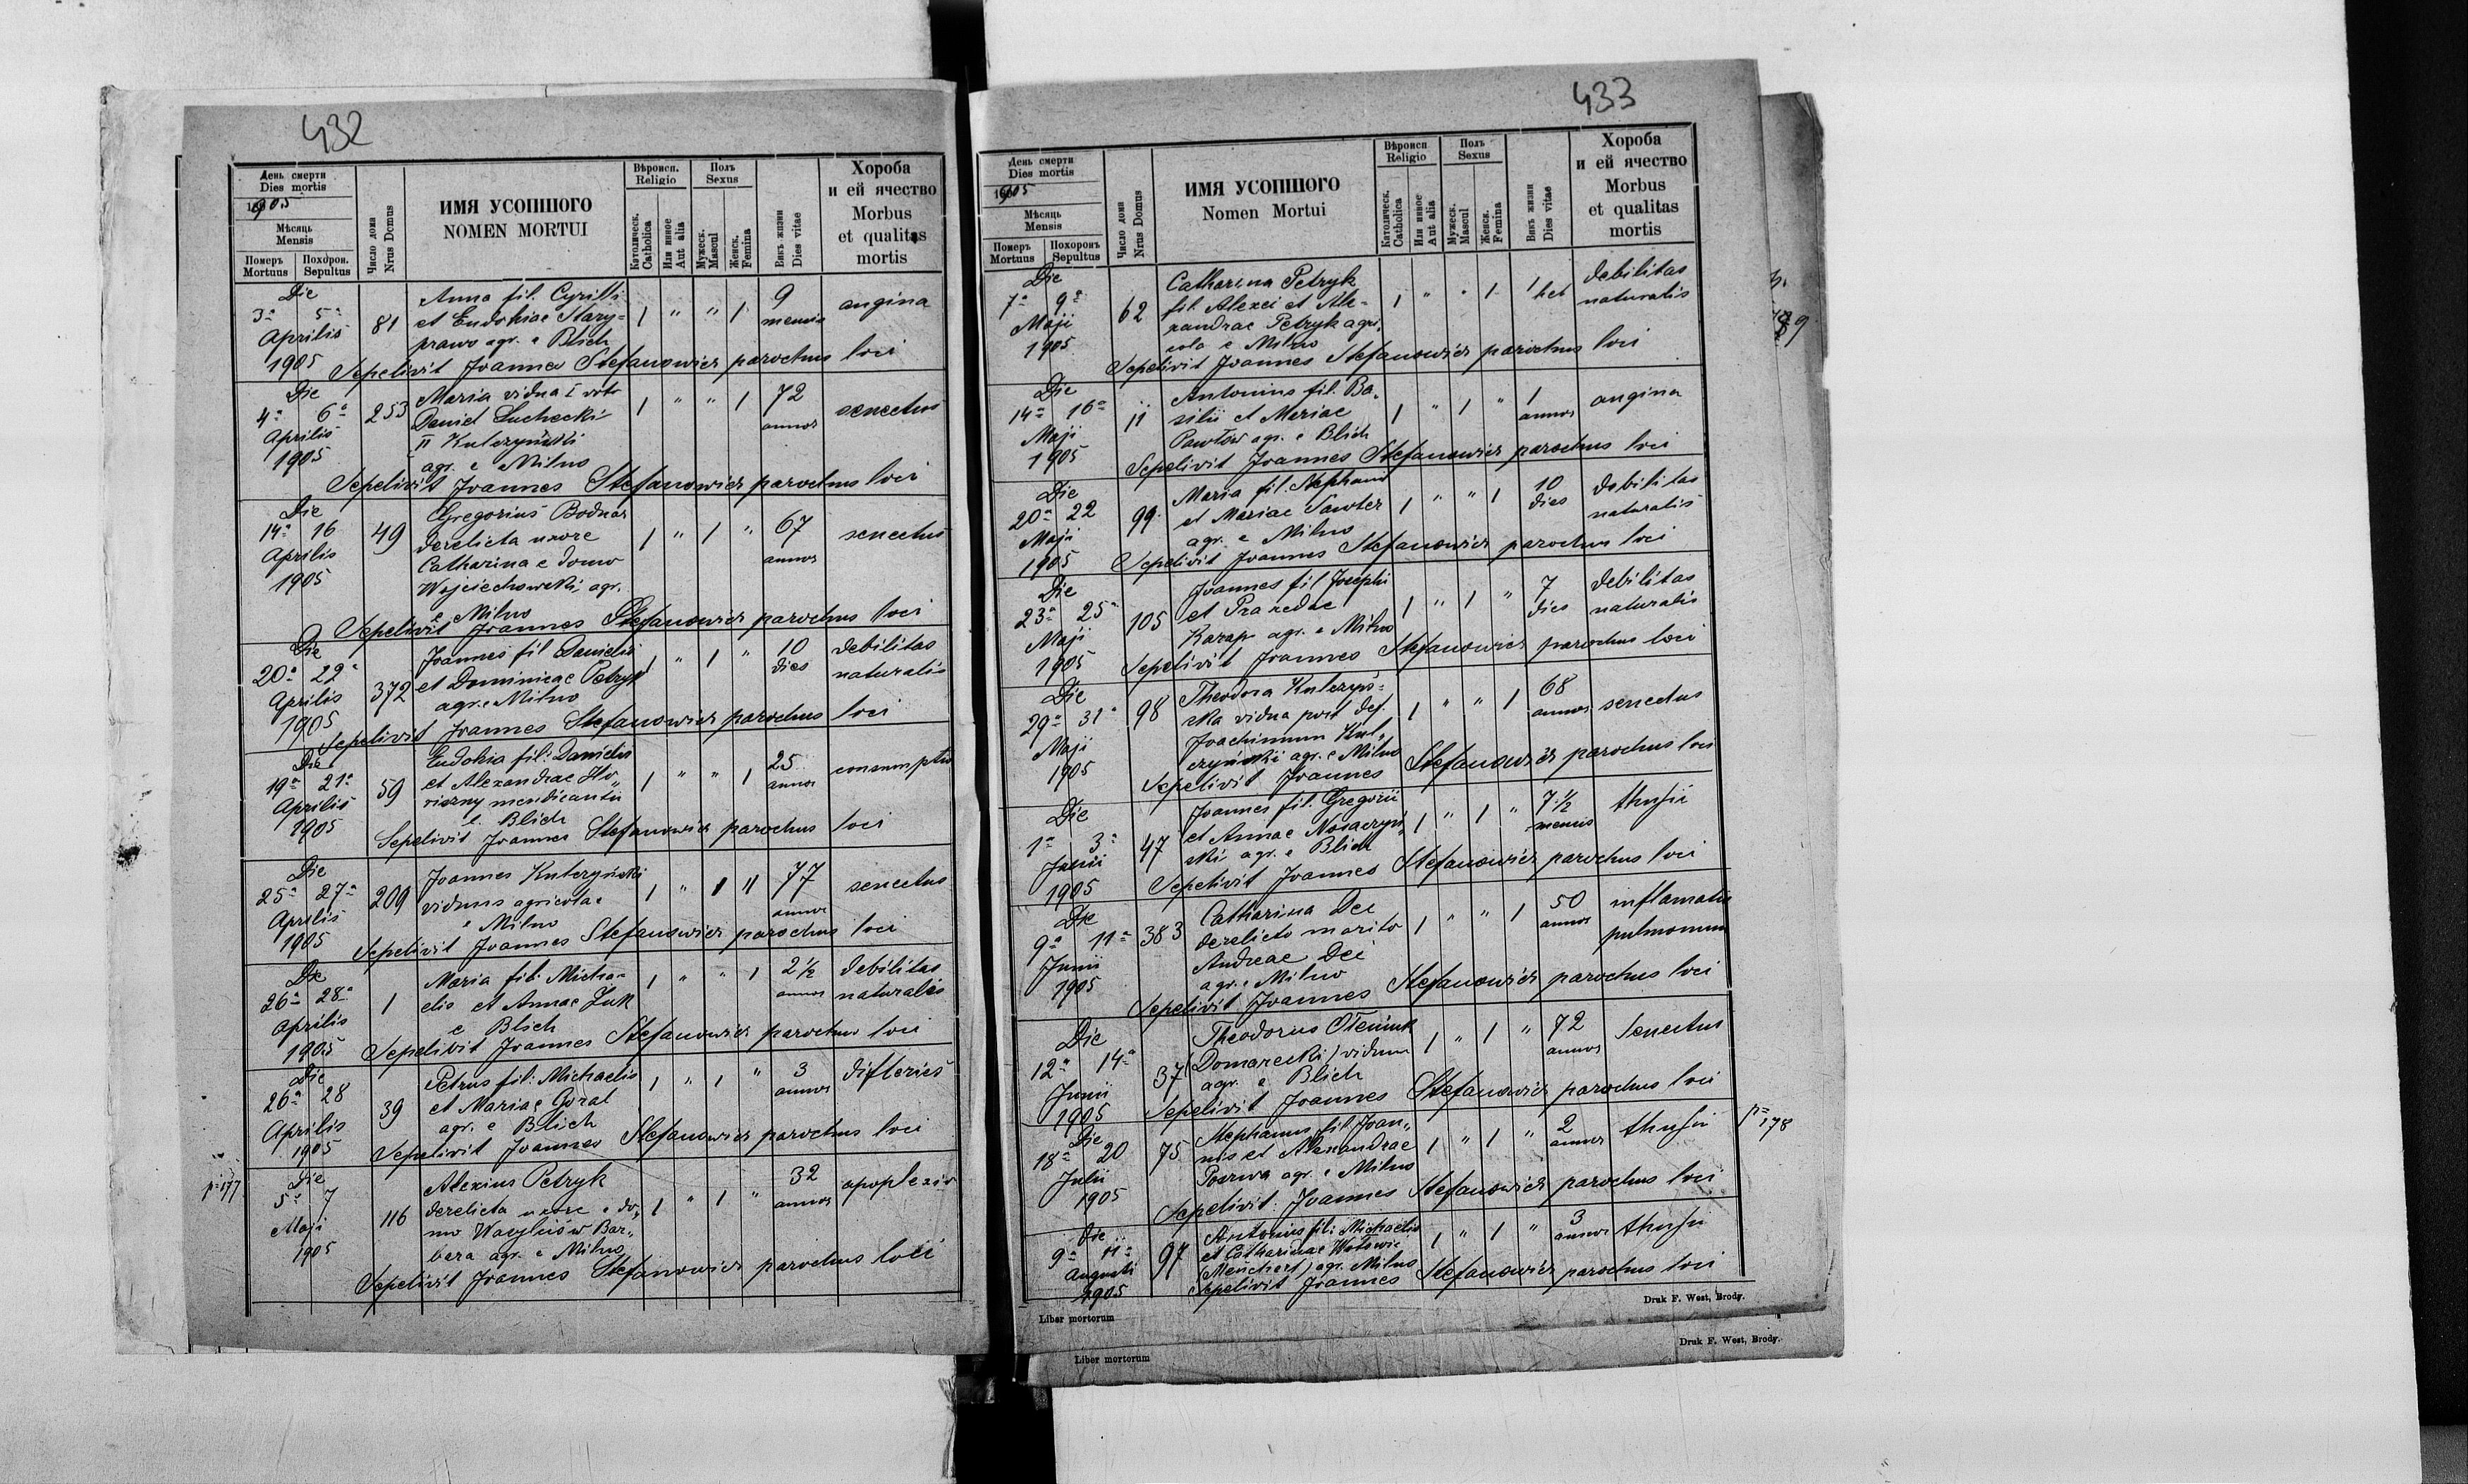 432
День смерти
Dies mortis
1905
Мѣсяць
Mensis
Померъ
Mortuus
Похорон.
Sepultus
Число дома
Nrus Domus
ИМЯ УСОПШОГО
NOMEN MORTUI
Вѣроисп.
Religio
Католическ.
Catholica
Или иное
Aut alia
Полъ
Sexus
Мужеск.
Mascul
Женск.
Femina
Викъ жизни
Dies vitae
Хороба
и ей ячество
Morbus
et qualitas
mortis
Die
3ª 5ª
Aprilis
1905
81
Anna fil. Cyrilli
et Eudokiae Stary-
prawo agr. e Blich
1 " " 1
9
mensis
angina
Sepelivit Joannes Stefanowicz parochus loci
Die
4ª 6ª
Aprilis
1905
253
Maria vidua I voto
Daniel Suchecki
II Kulczyński
agr. e Milno
1 " " 1
72
annos
senectus
Sepelivit Joannes Stefanowicz parochus loci
Die
14ª 16
Aprilis
1905
49
Gregorius Bodnar
derelicta uxore
Catharina e domo
Wojciechowski, agr.
e Milno
1 " 1 "
67
annos
senectus
Sepelivit Joannes Stefanowicz parochus loci
Die
20ª 22ª
Aprilis
1905
372
Joannes fil Danielis
et Dominicae Petryk
agr. e Milno
1 " 1 "
10
dies
debilitas
naturalis
Sepelivit Joannes Stefanowicz parochus loci
Die
19ª 21ª
Aprilis
1905
59
Eudokia fil: Danielis
et Alexandrae
mendicantis
e Blich
1 " " 1
25
annos
consumptio
Sepelivit Joannes Stefanowicz parochus loci
Die
25ª 27ª
Aprilis
1905
209
Joannes Kulczyński
viduus agricola
e Milno
1 " 1 "
77
annos
senectus
Sepelivit Joannes Stefanowicz parochus loci
Die
26ª 28ª
Aprilis
1905
1
Maria fil: Micha-
elis et Annae Żuk
e Blich
1 " " 1
2 1/2
annos
debilitas
naturalis
Sepelivit Joannes Stefanowicz parochus loci
Die
26ª 28
Aprilis
1905
39
Petrus fil: Michaelis
et Mariae Goral
agr. e Blich
1 " 1 "
3
annos
difteries
Sepelivit Joannes Stefanowicz parochus loci
p=177
Die
5ª 7
Maji
1905
116
Alexius Petryk
derelicta uxore e do-
mo Wasyluiów Bar-
bara agr. e Milno
1 " 1 "
32
annos
apoplexio
Sepelivit Joannes Stefanowicz parochus loci
433
День смерти
Dies mortis
1905
Мѣсяць
Mensis
Померъ
Mortuus
Похоронъ
Sepultus
Число дома
Nrus Domus
ИМЯ УСОПШОГО
Nomen Mortui
Вѣроисп
Religio
Католическ.
Catholica
Или иное
Aut alia
Полъ
Sexus
Мужеск.
Mascul
Женск.
Femina
Викъ жизни
Dies vitae
Хороба
и ей ячество
Morbus
et qualitas
mortis
Die
7ª 9ª
Maji
1905
62
Catharina Petryk
fil. Alexei et Ale-
xandrae Petryk agri-
cola e Milno
1 " " 1
1
debilitas
naturalis
Sepelivit Joannes Stefanowicz parochus loci
Die
14ª 16ª
Maji
1905
11
Antonius fil. Ba-
silii et Mariae
Pawłów agr. e Blich
1 " 1 "
1
annos
angina
Sepelivit Joannes Stefanowicz parochus loci
Die
20ª 22
Maji
1905
99
Maria fil. Stephani
et Mariae Sawter
agr. e Milno
1 " " 1
10
dies
debilitas
naturalis
Sepelivit Joannes Stefanowicz parochus loci
Die
23ª 25ª
Maji
1905
105
Joannes fil Josephi
et Praxedae
Karap agr. e Milno
1 " 1 "
7
dies
debilitas
naturalis
Sepelivit Joannes Stefanowicz parochus loci
Die
29ª 31ª
Maji
1905
98
Theodora Kulczyń-
ska vidua post def.
Joachimum Kul-
czyński agr. e Milno
1 " " 1
68
annos
senectus
Sepelivit Joannes Stefanowicz parochus loci
Die
1ª 3ª
Junii
1905
47
Joannes fil. Gregorii
et Annae Nosaczyń-
ski agr. e Blich
1 " 1 "
7 1/2
mensis
thusis
Sepelivit Joannes Stefanowicz parochus loci
Die
9ª 11ª
Junii
1905
383
Catharina Dei
derelicto marito
Andreae Dei
agr. e Milno
1 " " 1
50
annos
inflamatio
pulmonum
Sepelivit Joannes Stefanowicz parochus loci
Die
12ª 14ª
Junii
1905
37
Theodorus
Domarecki) viduus
agr. e Blich
1 " 1 "
72
annos
senectus
Sepelivit Joannes Stefanowicz parochus loci
Die
18ª 20
Julii
1905
75
Stephanus fil. Joan-
nis et Alexandrae
Poerwa agr. e Milno
1 " 1 "
2
annos
thusis
p=178
Sepelivit Joannes Stefanowicz parochus loci
Die
9ª 11ª
Augusti
1905
97
Antonius fil: Michaelis
et Catharinae
agr. Milno
1 " 1 "
3
annos
thusis
Sepelivit Joannes Stefanowicz parochus loci
Liber mortorum
Druk F. West, Brody.
Liber mortorum
Druk F. West, Brody.